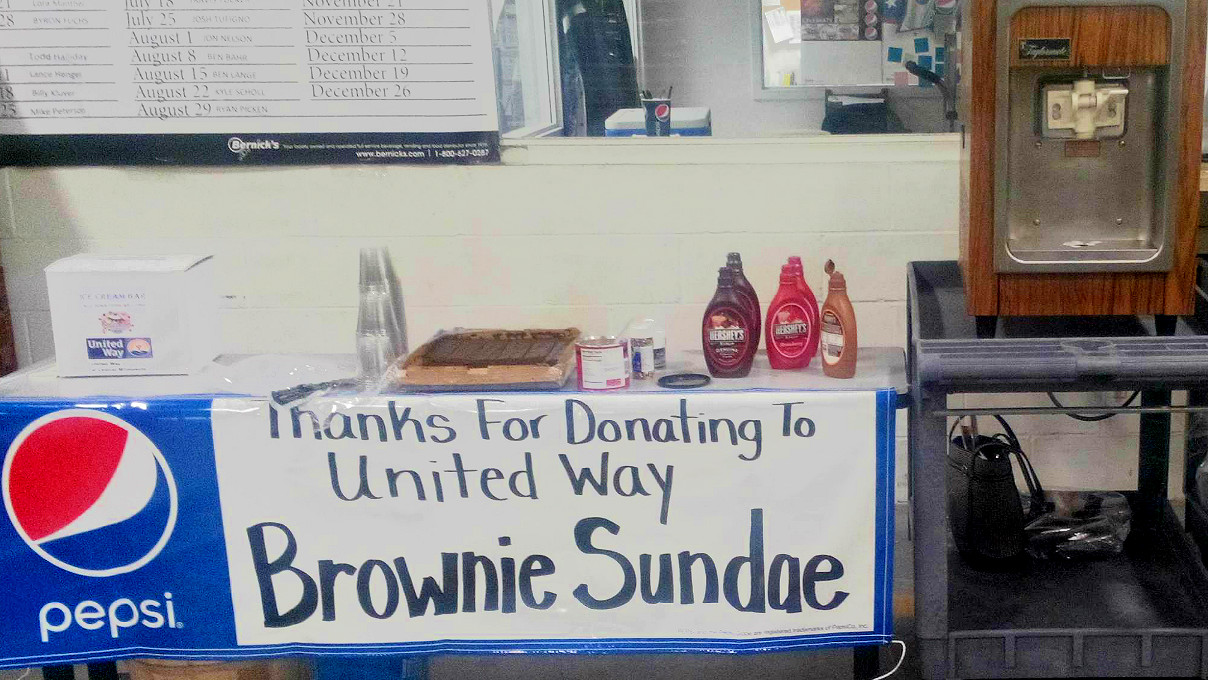 July 18
November 21
28 BYRON FUCHS July 25 JOSH TUFIGNO November 28
August 1 JON NELSON December 5
Todd Halliday August 8 BEN BAHR December 12
Lance Henge August 15 BEN LANGE December 19
18 Billy Kluver August 22 KYLE SCHOLL December 26
25 Mike Peterson August 29 RYAN PICKEN
Bernick's
www.bernicks.com | 1-800-627-0287
United
Way
HERSHEY'S
HERSHEY'S
Taylormate
Thanks For Donating To
United Way
Brownie Sundae
pepsi
are registered trademarks of PepsiCo, Inc.